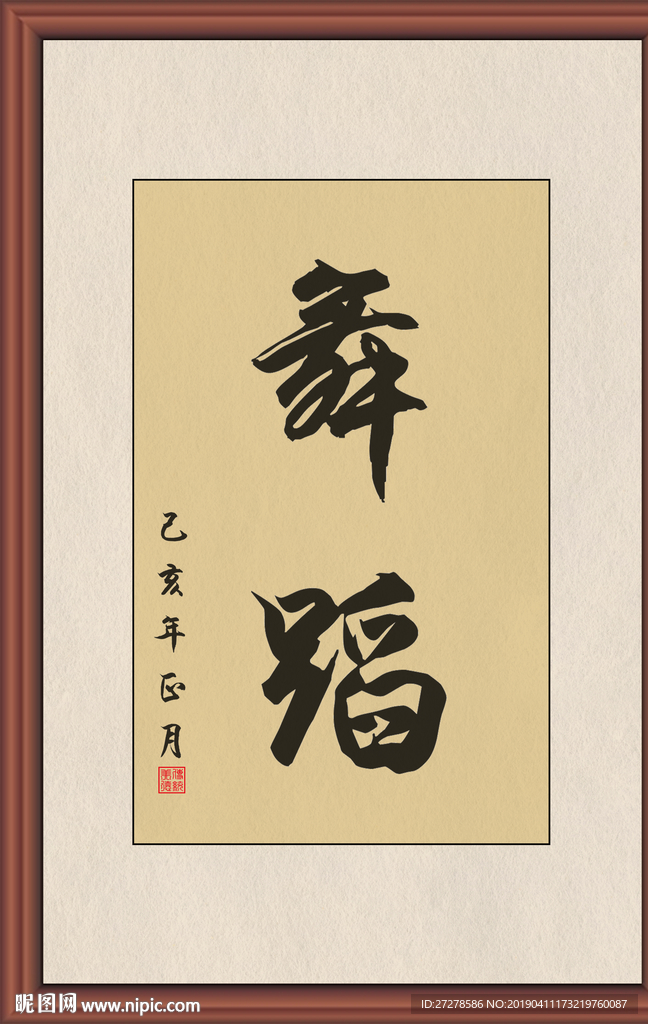 舞蹈
己亥年正月
傳統美德
昵图网 www.nipic.com
ID:27278586 NO:20190411173219760087